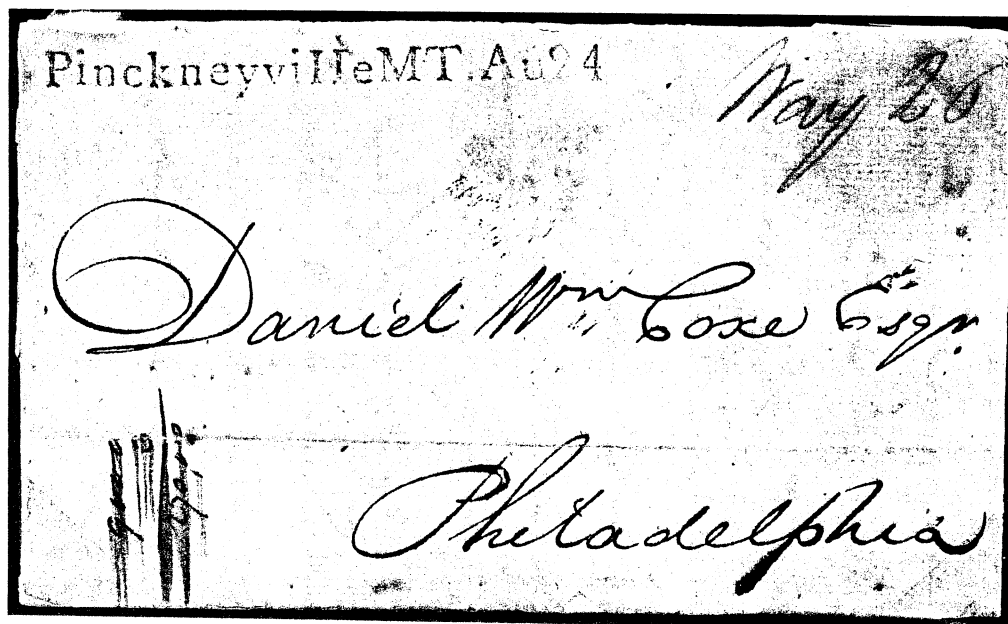 PinckneyvilleMT.Au24
Way 26
Daniel Wm Coxe Esqr.
Philadelphia